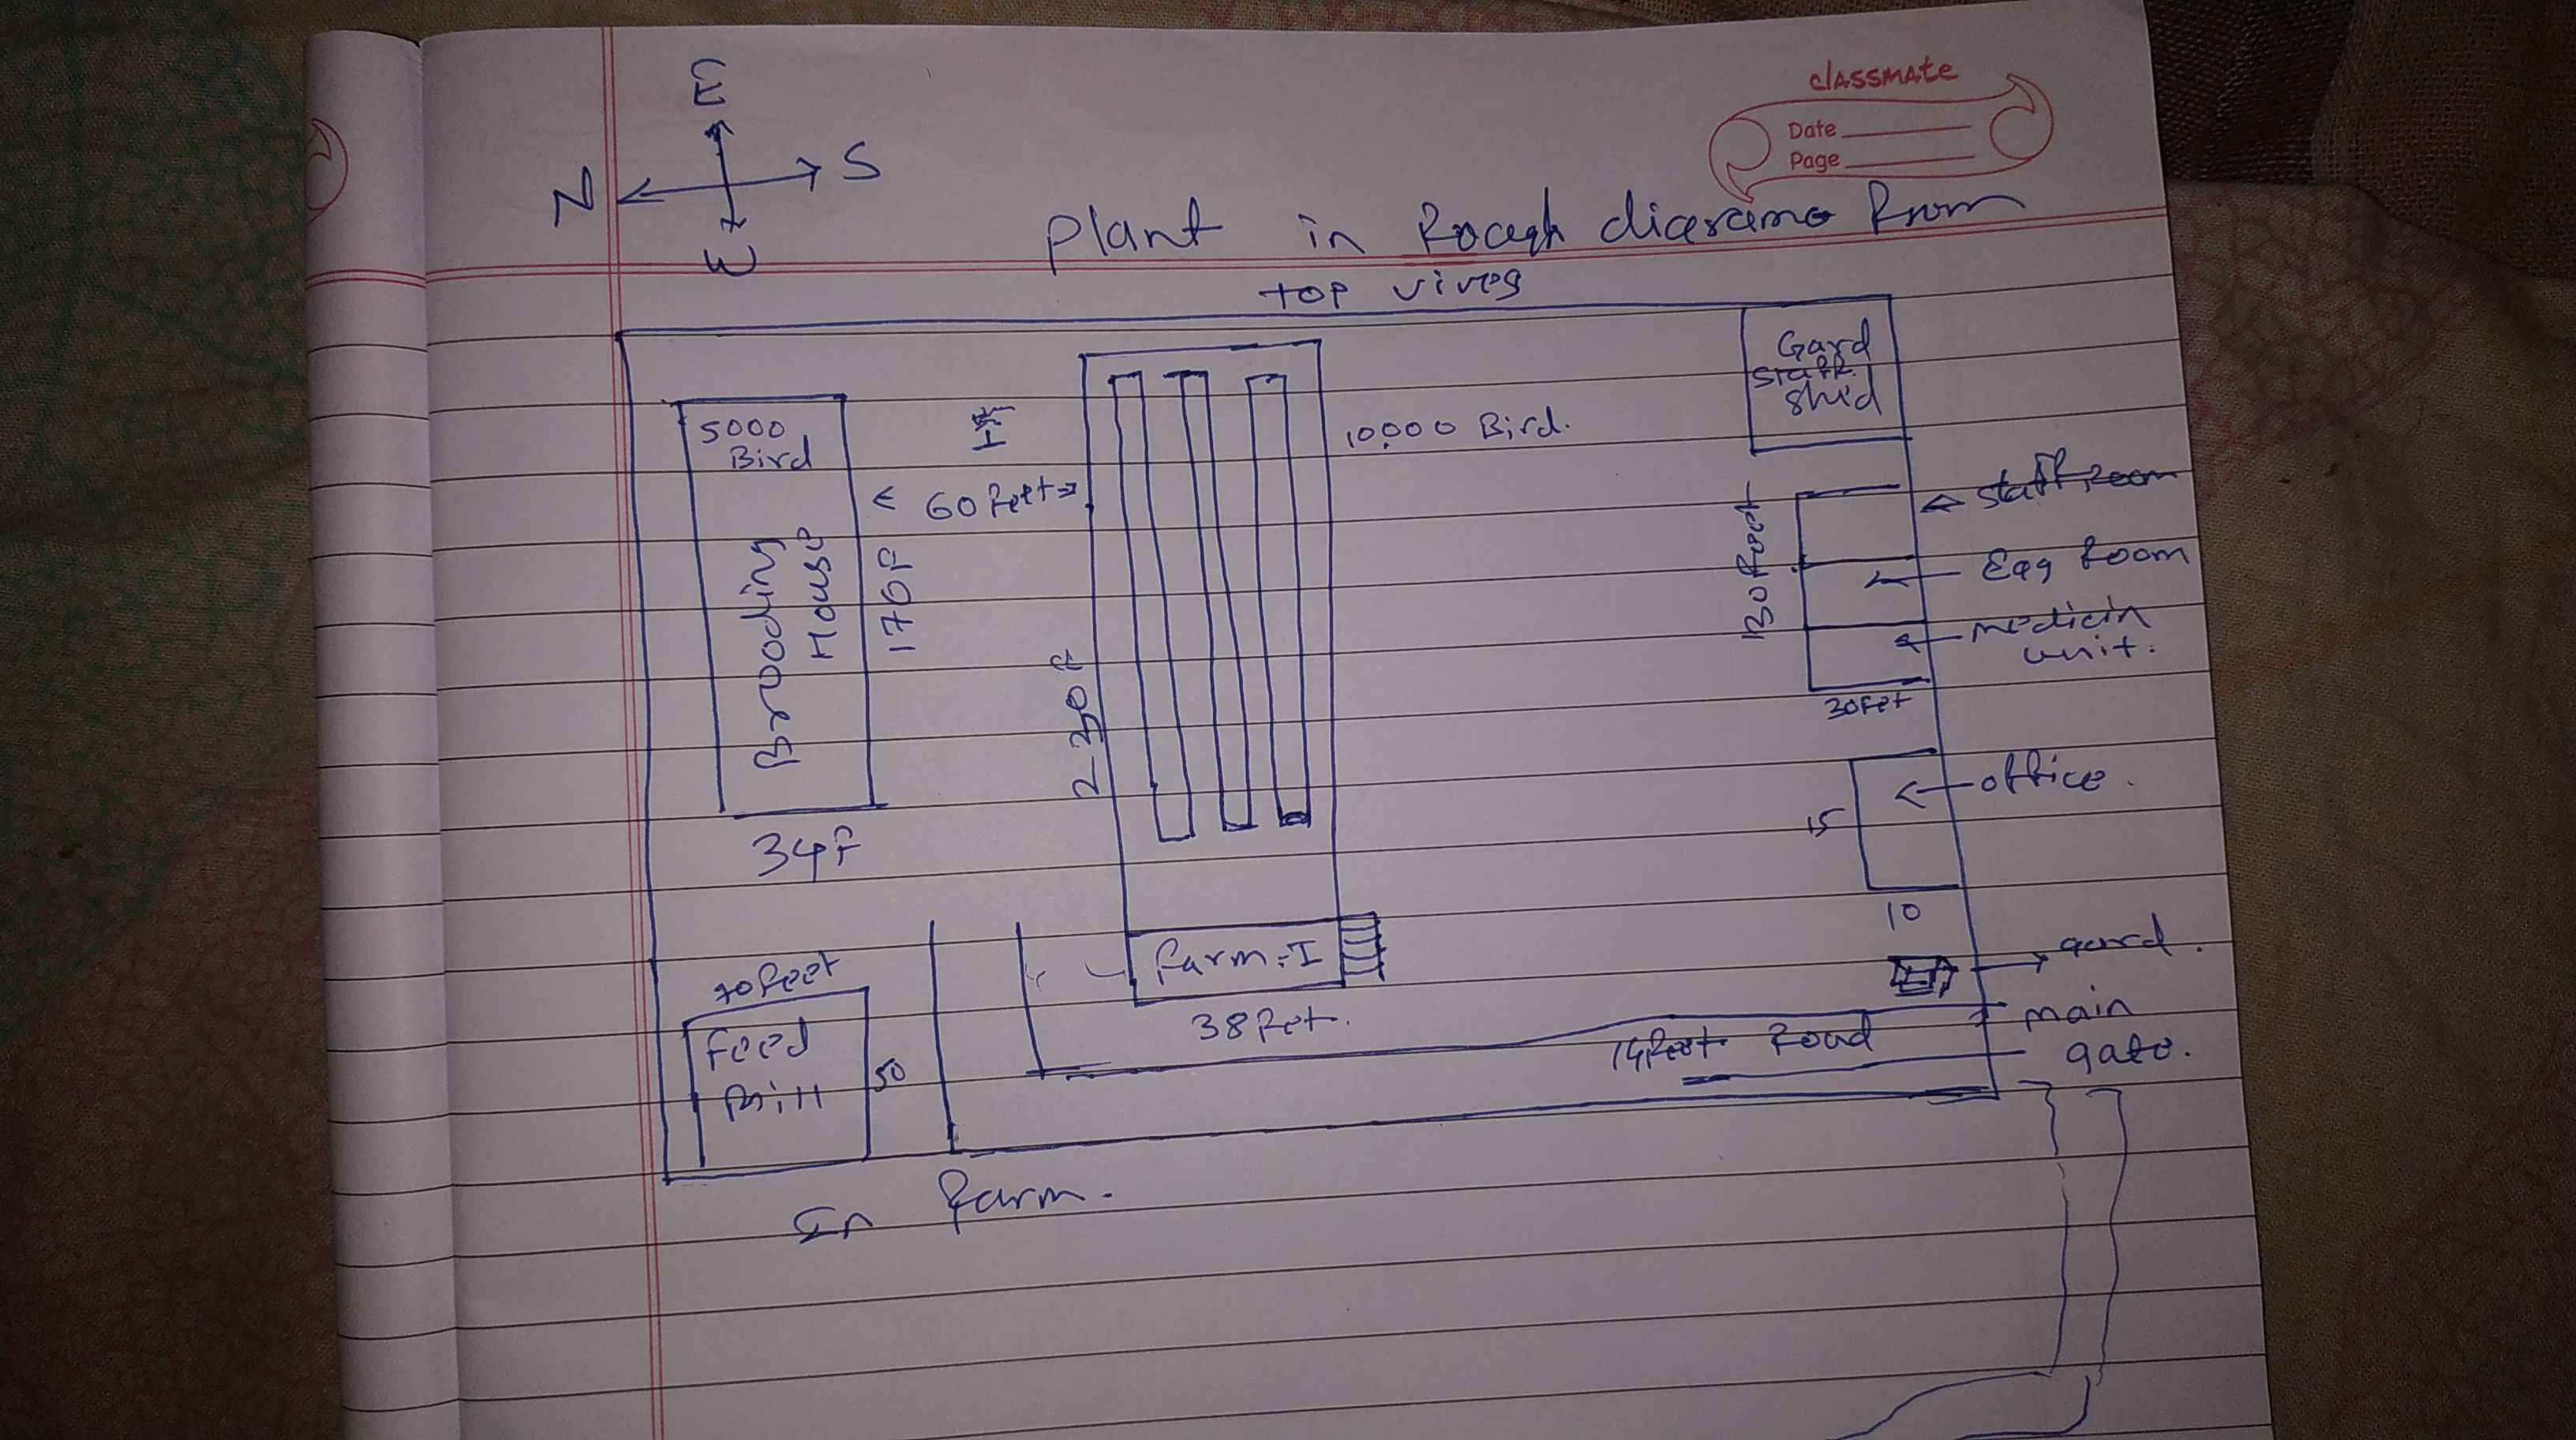 classmate
Date
Page
E
N
S
W
Plant in Rough
top
5000
Bird
Brooding
House
34F
176F
< 60 feet
10,000 Bird.
Gard
staff
shid
staff room
Egg Room
medicin
unit.
30 fet
office.
15
10
gard.
main
gate.
14 feet Road
Farm-I
38 fet.
70 feet
Feed
Mill
50
In farm.